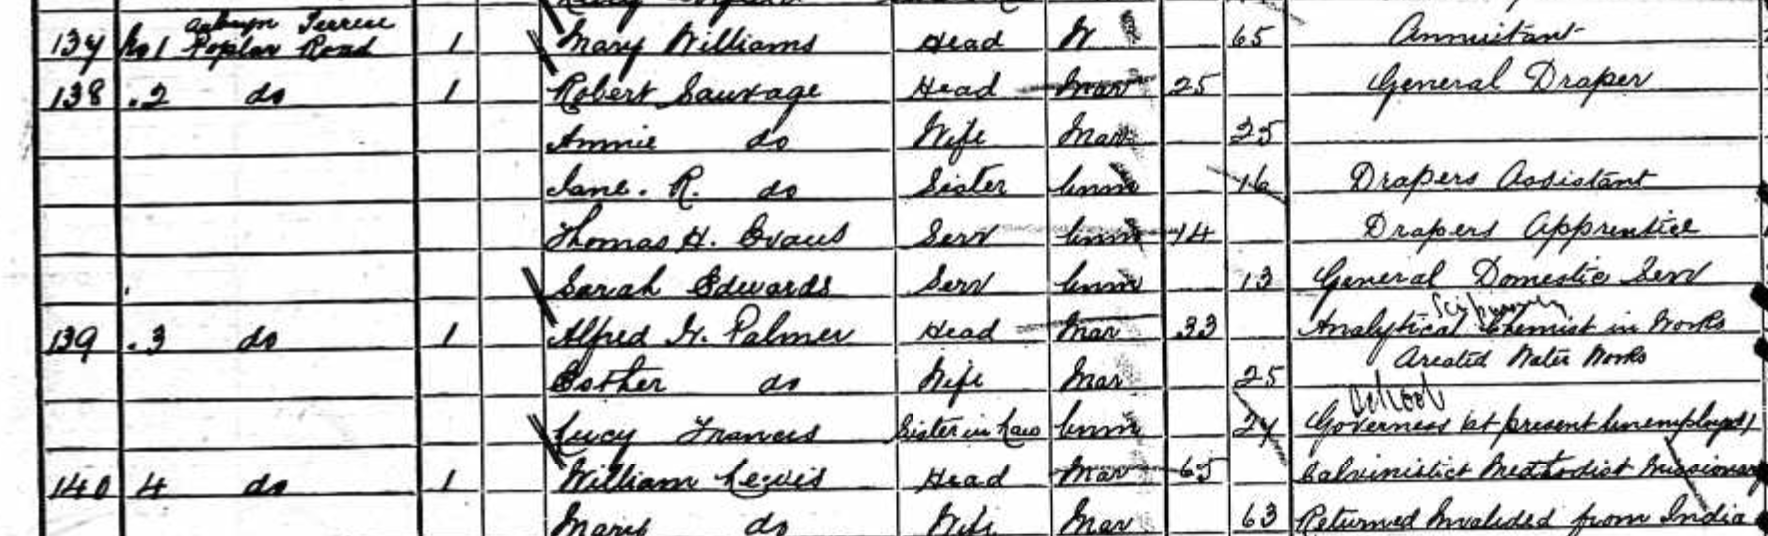 137 No 1 Terrace Poplar Road 1 Mary Williams Head W 65 Annuitant
138 .2 do 1 Robert Sauvage Head Mar 25 General Draper
Annie do Wife Mar 25
Jane. R. do Sister Unm 16 Drapers Assistant
Thomas H. Evans Serv Unm 14 Drapers Apprentice
Sarah Edwards Serv Unm 13 General Domestic Serv
139 .3 do 1 Alfred W. Palmer Head Mar 33 Analytical Chemist in Works
Areated Water Works
Esther do Wife Mar 25
School
Lucy Francis Sister in Law Unm 24 Governess (at present Unemployed)
140 4 do 1 William Lewis Head Mar 65 Calvinistict Methodist Missionary
Mary do Wife Mar 63 Returned Invalided from India